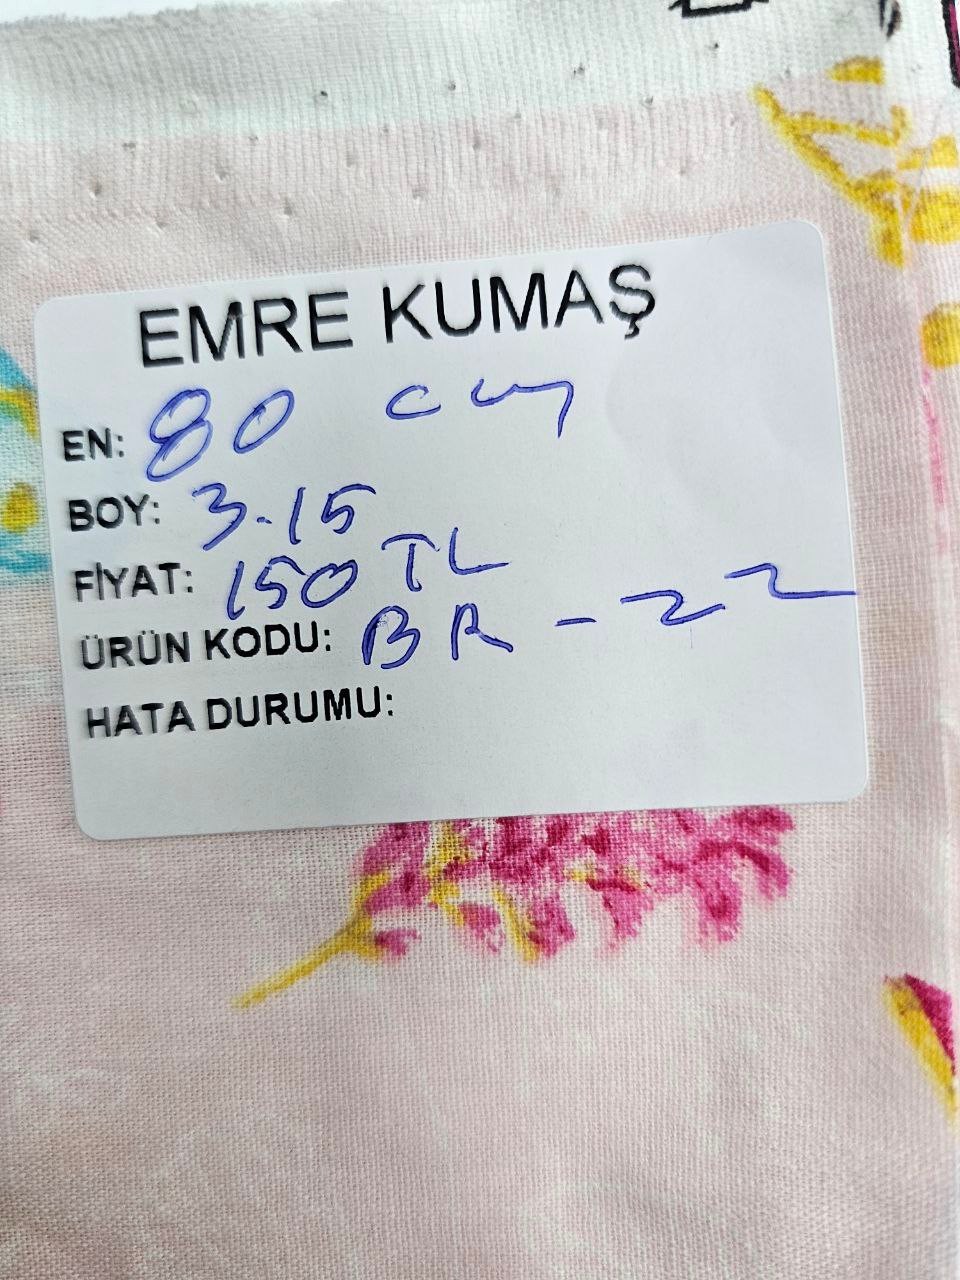 EMRE KUMAŞ
EN: 80 cm
BOY: 3.15
FİYAT: 150 TL
ÜRÜN KODU: BR - 22
HATA DURUMU: